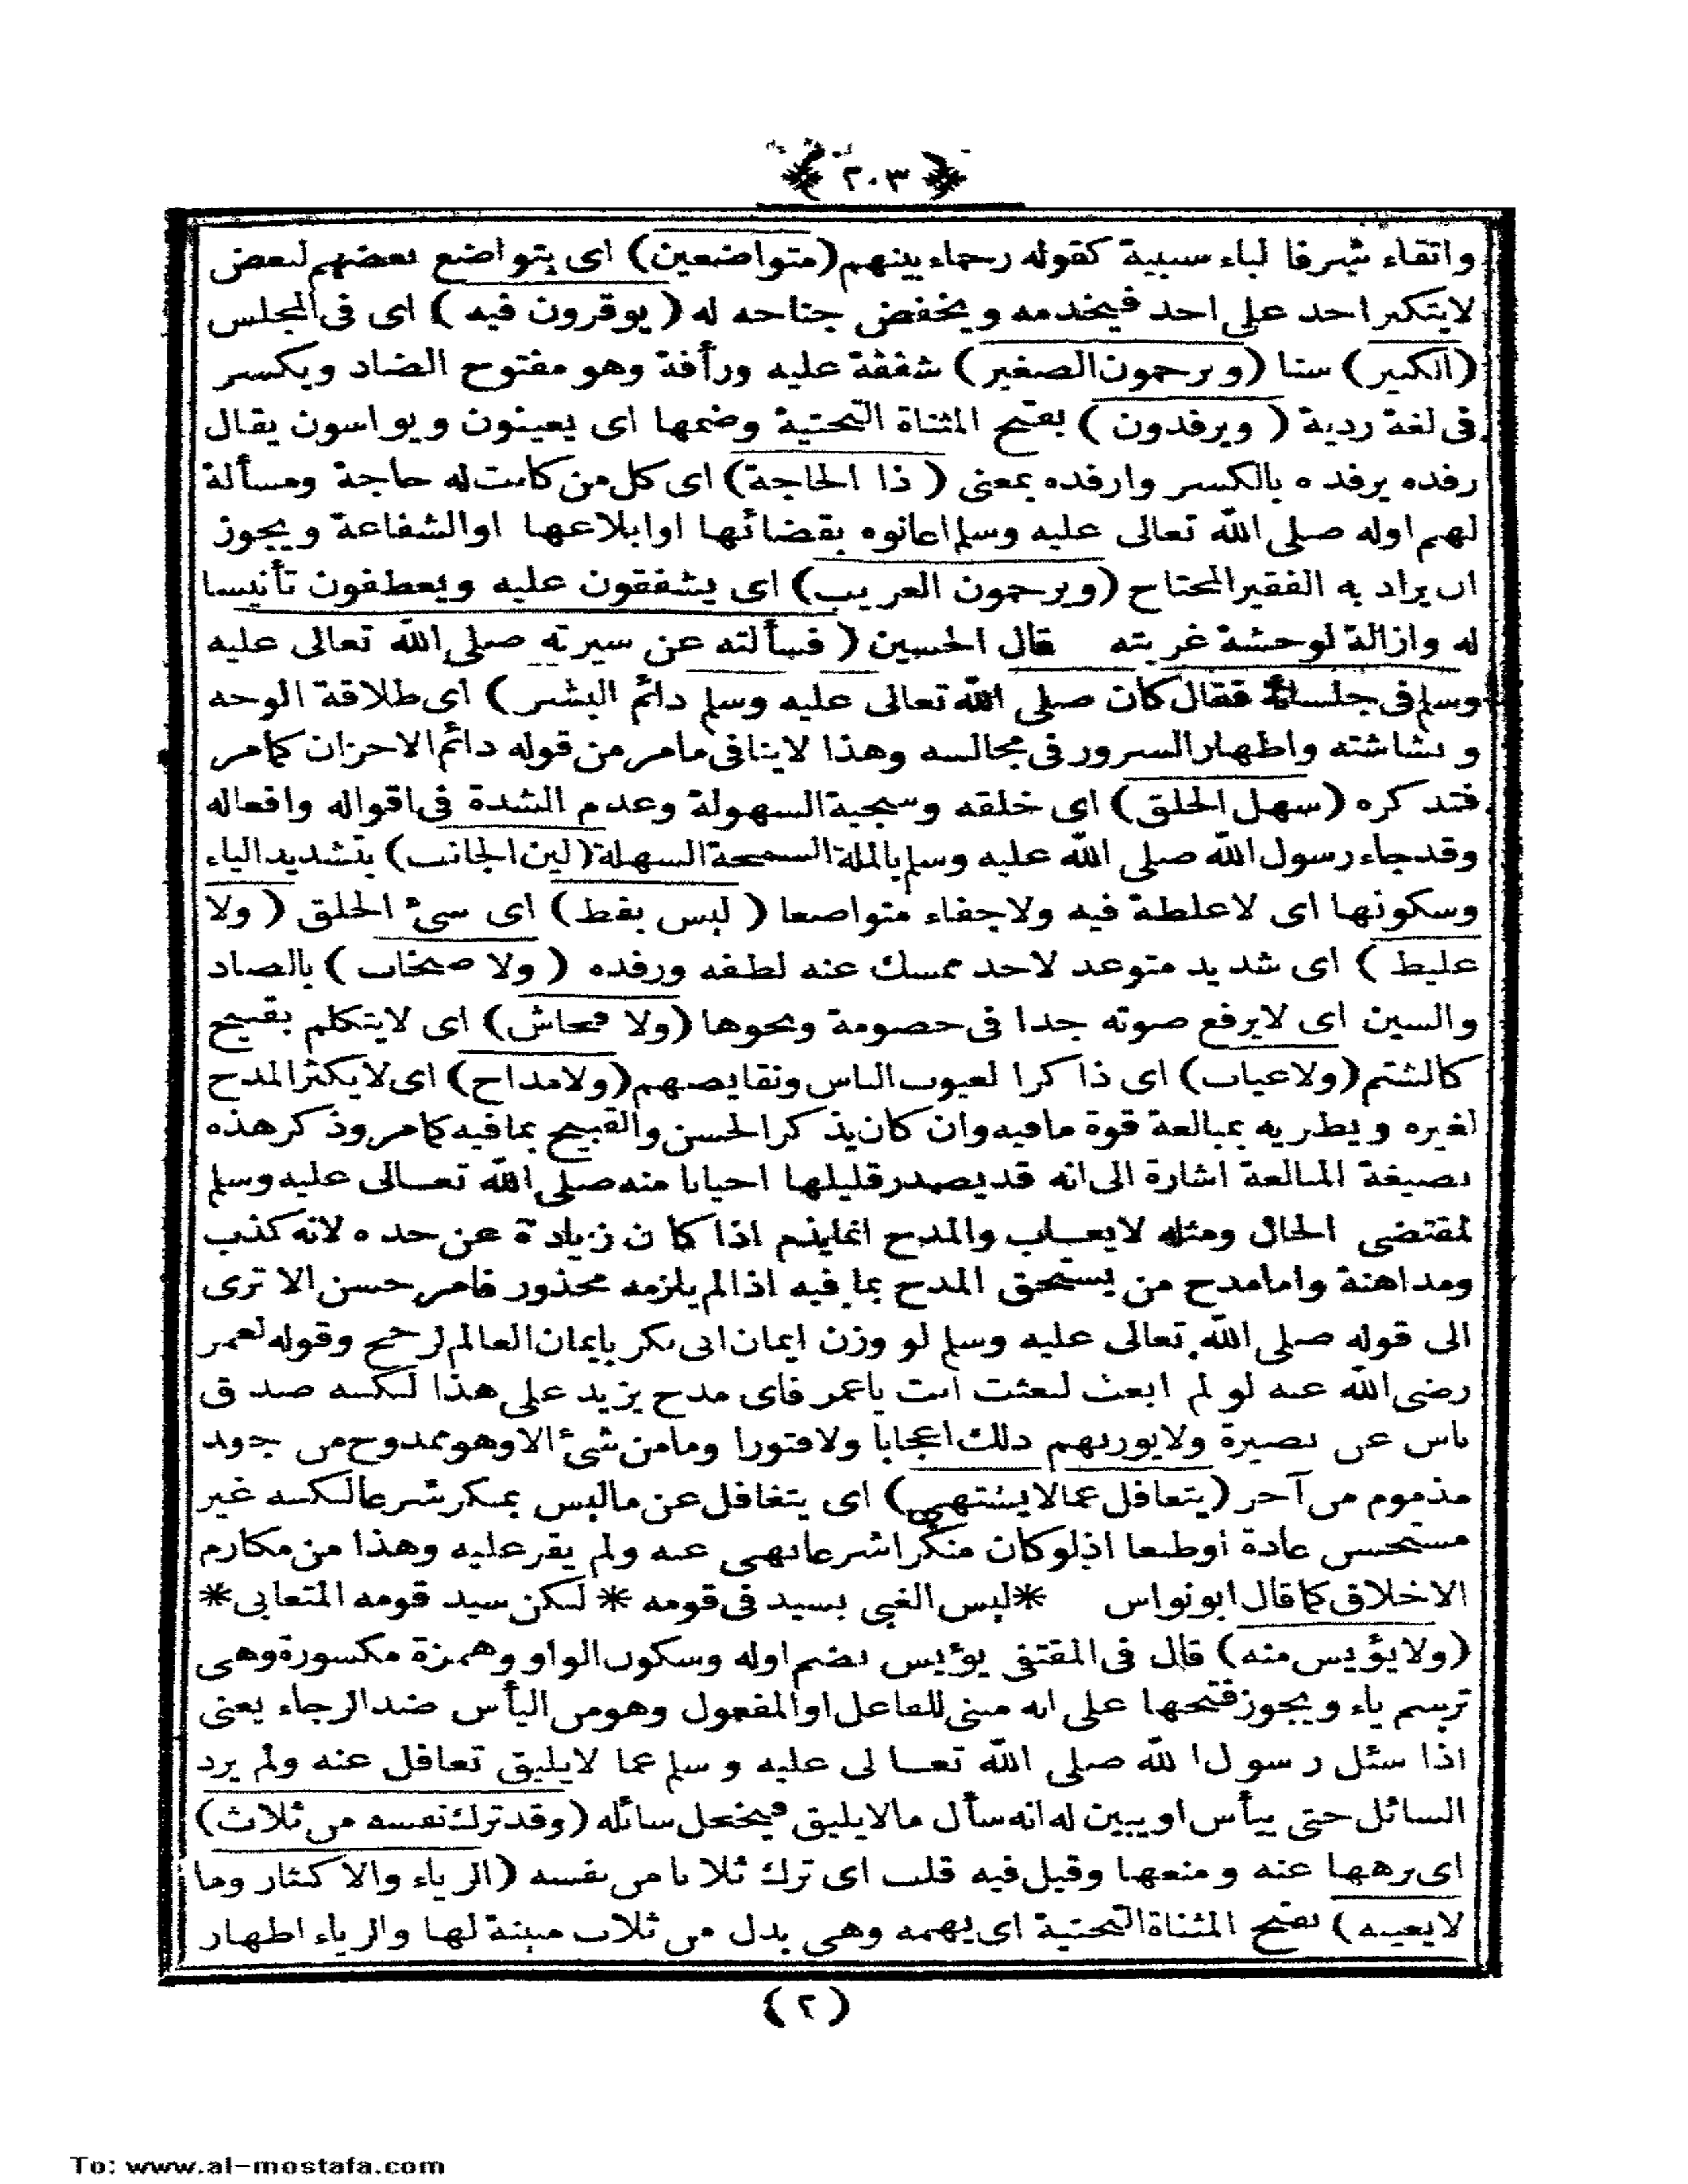 ﴿ ٢٠٣ ﴾
واتقاء شرفا لباء سببية كقوله رحماء بينهم (متواضعين) اى يتواضع بعضهم لبعض
لايتكبر احد على احد فيخدمه ويخفض جناحه له ( يوقرون فيه ) اى فى المجلس
(الكبير) سنا (ويرحمون الصغير) شفقة عليه ورأفة وهو مفتوح الضاد ويكسر
فى لغة ردية ( ويرفدون ) بفتح المثناة التحتية وضمها اى يعينون ويواسون يقال
رفده يرفده بالكسر وارفده بمعنى ( ذا الحاجة) اى كل من كانت له حاجة ومسألة
لهم اوله صلى الله تعالى عليه وسلم اعانوه بقضائها اوابلاغها اوالشفاعة ويجوز
ان يراد به الفقير المحتاج (ويرحمون الغريب) اى يشفقون عليه ويعطفون تأنيسا
له وازالة لوحشة غربته قال الحسين ( فسألته عن سيرته صلى الله تعالى عليه
وسلم فى جلسائه فقال كان صلى الله تعالى عليه وسلم دائم البشر) اى طلاقة الوجه
وبشاشته واظهار السرور فى مجالسه وهذا لاينافى مامر من قوله دائم الاحزان كمامر
فتذكره (سهل الخلق) اى خلقه وسجية السهولة وعدم الشدة فى اقواله وافعاله
وقدجاء رسول الله صلى الله عليه وسلم بالملة السمحة السهلة (لين الجانب) بتشديد الياء
وسكونها اى لاغلظة فيه ولاجفاء متواضعا ( ليس بفظ) اى سئ الخلق ( ولا
غليظ ) اى شديد متوعد لاحد ممسك عنه لطفه ورفده ( ولا صخاب ) بالصاد
والسين اى لايرفع صوته جدا فى خصومة ونحوها (ولا فحاش) اى لايتكلم بقبيح
كالشتم (ولاعياب) اى ذاكرا لعيوب الناس ونقايصهم (ولامداح) اى لايكثر المدح
لغيره ويطريه بمبالغة قوة مافيه وان كان يذكر الحسن والقبيح بمافيه كمامر وذكر هذه
بصيغة المبالغة اشارة الى انه قديصدر قليلها احيانا منه صلى الله تعالى عليه وسلم
لمقتضى الحال ومثله لايعاب والمدح انمايذم اذا كان زيادة عن حده لانه كذب
ومداهنة وامامدح من يستحق المدح بما فيه اذالم يلزمه محذور فامر حسن الا ترى
الى قوله صلى الله تعالى عليه وسلم لو وزن ايمان ابى بكر بايمان العالم لرجح وقوله لعمر
رضى الله عنه لو لم ابعث لبعثت انت ياعمر فاى مدح يزيد على هذا لكنه صدق
ناس عن بصيرة ولايورثهم ذلك اعجابا ولافتورا ومامن شئ الاوهو ممدوح من جود
مذموم من آخر (يتغافل عمالايشتهى) اى يتغافل عن ماليس بمنكر شرعا لكنه غير
مستحسن عادة اوطبعا اذلوكان منكرا شرعا نهى عنه ولم يقر عليه وهذا من مكارم
الاخلاق كما قال ابونواس *ليس الغبى بسيد فى قومه * لكن سيد قومه المتغابى*
(ولايؤيس منه) قال فى المقتفى يؤيس بضم اوله وسكون الواو وهمزة مكسورة وهى
ترسم ياء ويجوز فتحها على انه مبنى للفاعل اوالمفعول وهومن اليأس ضدالرجاء يعنى
اذا سئل رسول الله صلى الله تعالى عليه وسلم عما لايليق تغافل عنه ولم يرد
السائل حتى ييأس او يبين له انه سأل مالايليق فيخجل سائله (وقدترك نفسه من ثلاث)
اى نزهها عنه ومنعها وقيل فيه قلب اى ترك ثلاثا من نفسه (الرياء والاكثار وما
لايعنيه) بفتح المثناة التحتية اى يهمه وهى بدل من ثلاث مبينة لها والرياء اظهار
(٢)
To: www.al-mostafa.com